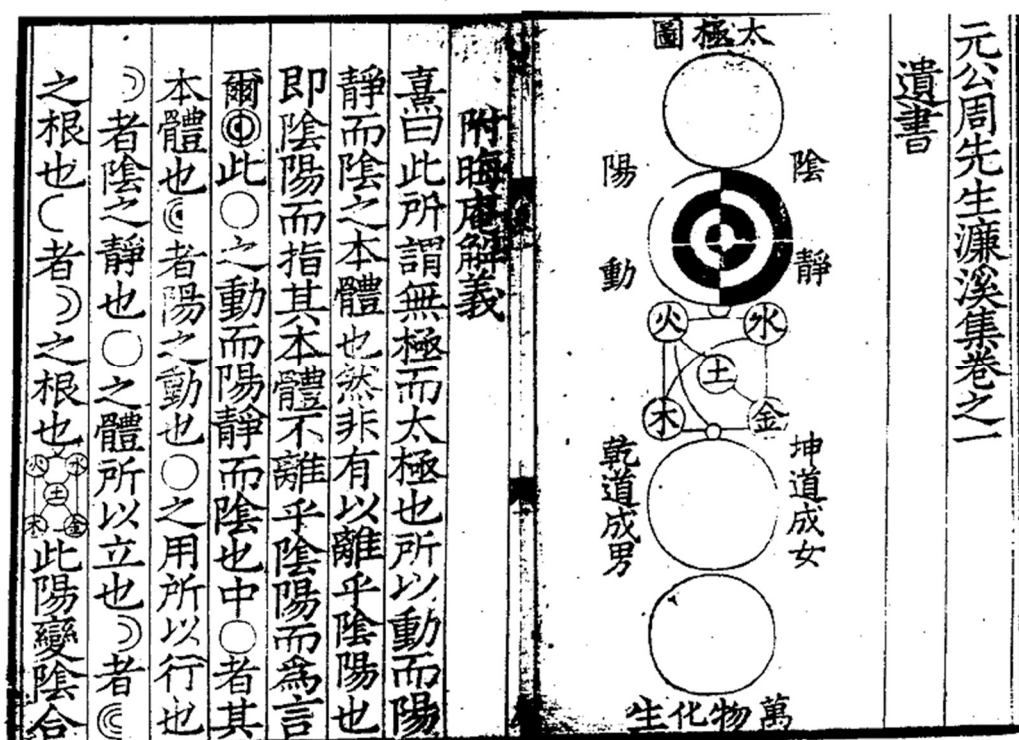 元公周先生濂溪集卷之一
遺書
太極圖
陰靜
陽動
水
火
土
金
木
坤道成女
乾道成男
萬物化生
附晦庵解義
熹曰此所謂無極而太極也所以動而陽
靜而陰之本體也然非有以離乎陰陽也
即陰陽而指其本體不離乎陰陽而爲言
爾此○之動而陽靜而陰也中○者其
本體也者陽之動也○之用所以行也
者陰之靜也○之體所以立也者
之根也者之根也水火土金木此陽變陰合